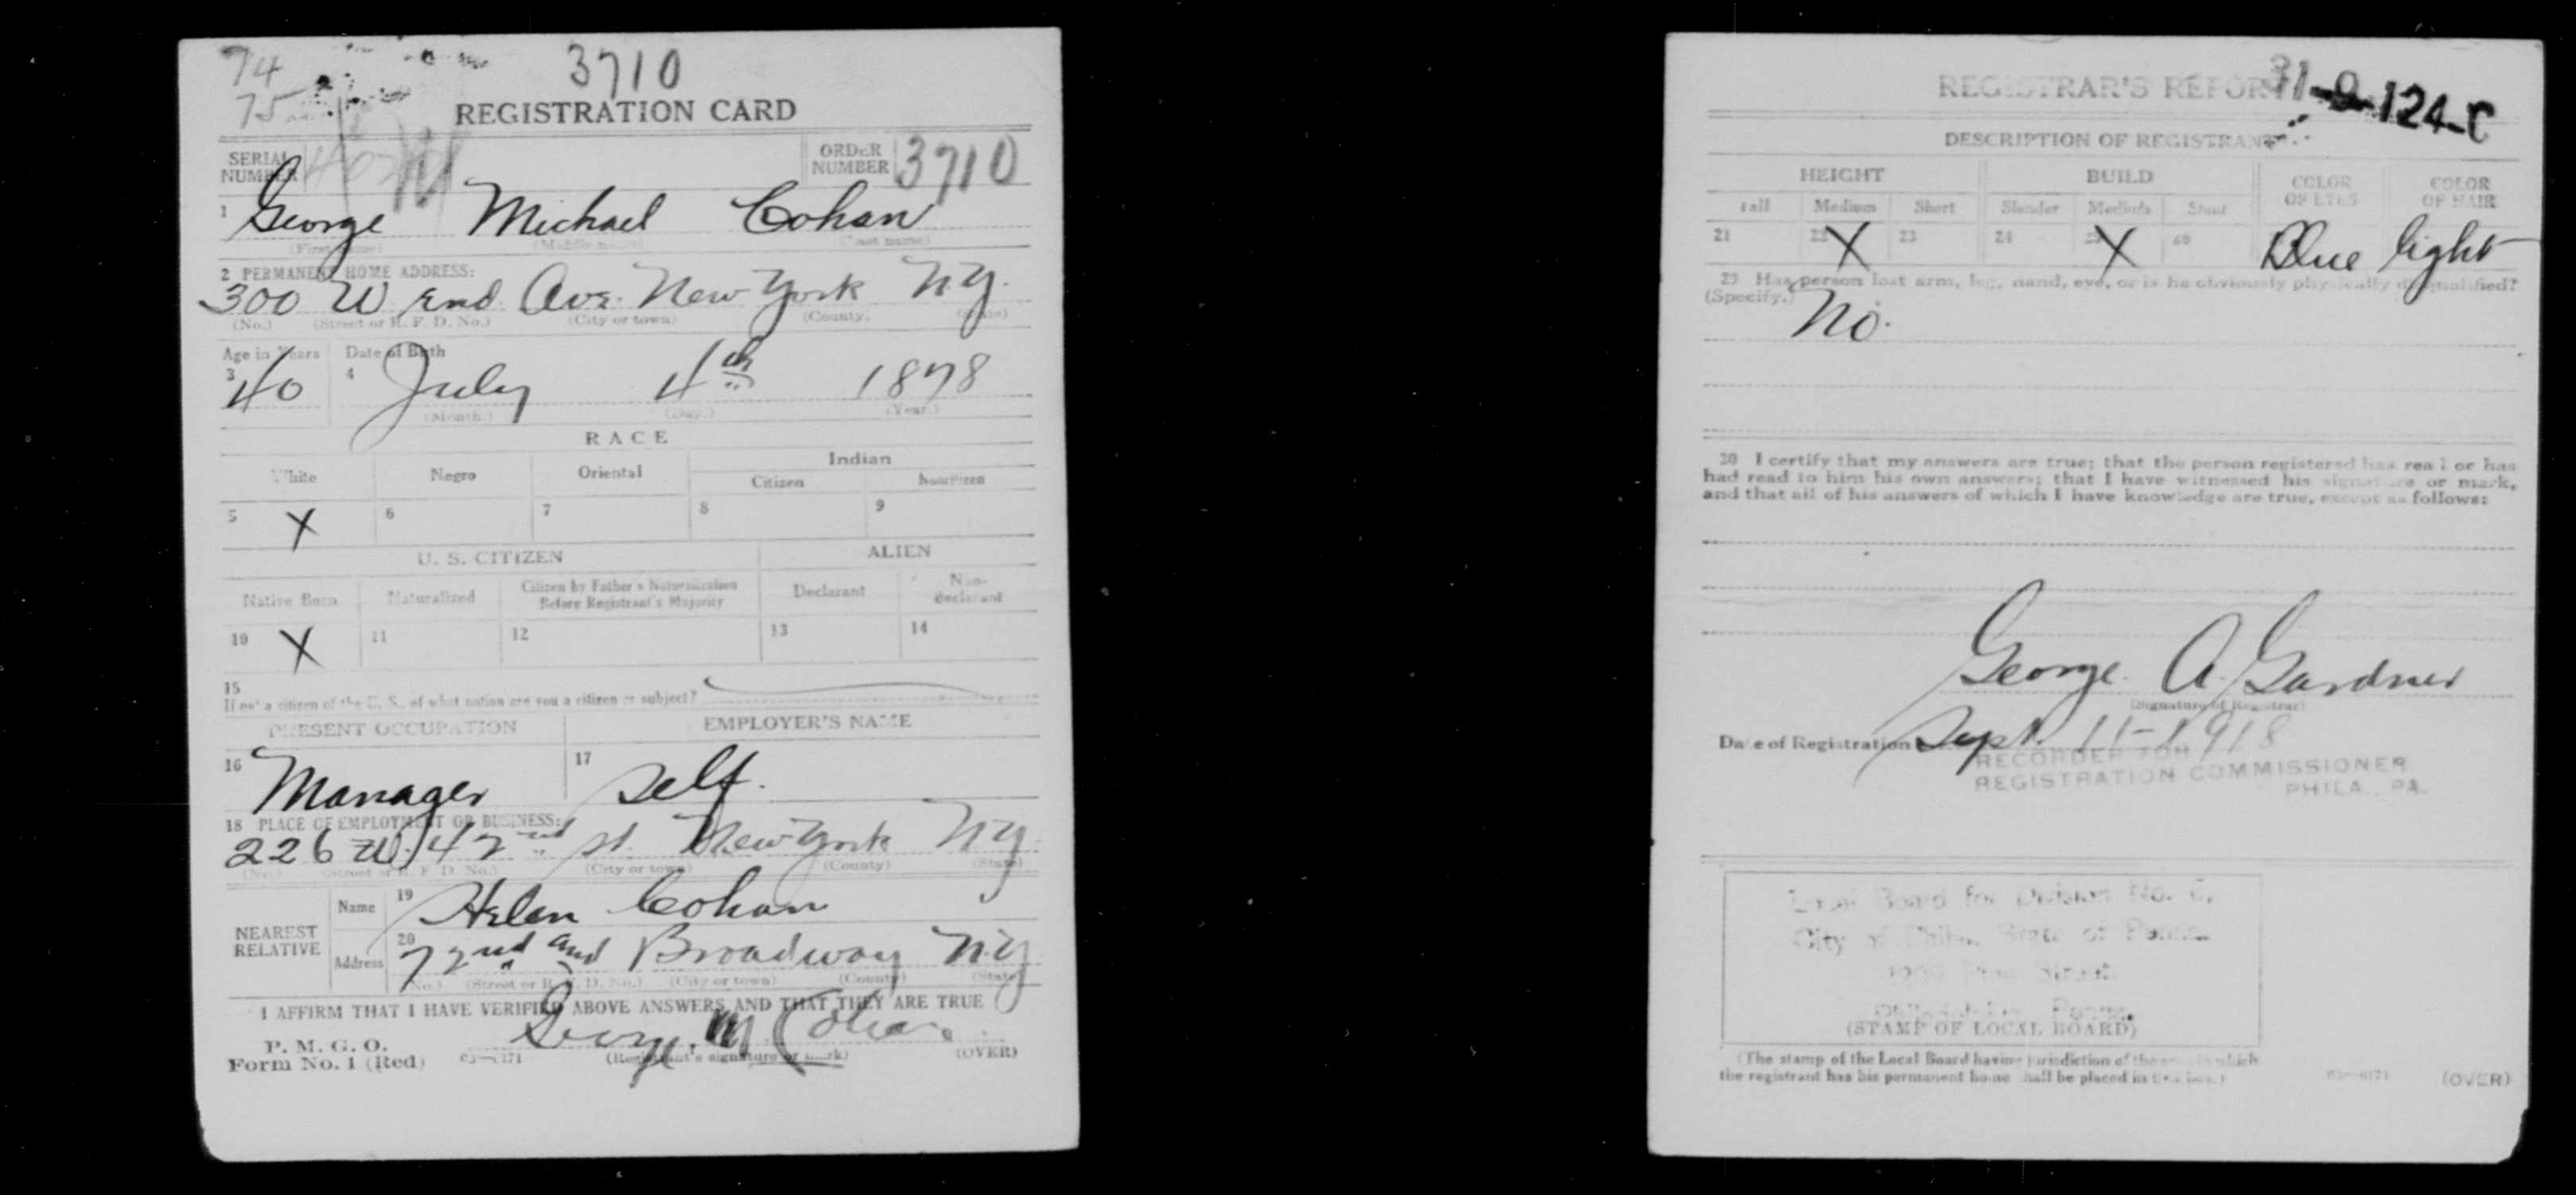 74
75
3710
REGISTRATION CARD
SERIAL NUMBER
ORDER NUMBER 3710
1 George Michael Cohan
(First name) (Middle name) (Last name)
2 PERMANENT HOME ADDRESS:
300 W End Ave. New York N.Y.
(No.) (Street or R. F. D. No.) (City or town) (County) (State)
Age in Years Date of Birth
3 40 4 July 4th 1878
(Month.) (Day.) (Year.)
RACE
White Negro Oriental Indian
Citizen Noncitizen
5 X 6 7 8 9
U. S. CITIZEN ALIEN
Native Born Naturalized Citizen by Father's Naturalization Before Registrant's Majority Declarant Non-declarant
10 X 11 12 13 14
15
If not a citizen of the U. S., of what nation are you a citizen or subject?
PRESENT OCCUPATION EMPLOYER'S NAME
16 Manager 17 Self.
18 PLACE OF EMPLOYMENT OR BUSINESS:
226 W. 42nd St. New York N.Y.
(No.) (Street or R. F. D. No.) (City or town) (County) (State)
NEAREST RELATIVE
Name 19 Helen Cohan
Address 20 72nd and Broadway N.Y.
(No.) (Street or R. F. D. No.) (City or town) (County) (State)
I AFFIRM THAT I HAVE VERIFIED ABOVE ANSWERS AND THAT THEY ARE TRUE
P. M. G. O.
Form No. 1 (Red) 03—6171 George M Cohan
(Registrant's signature or mark) (OVER)
REGISTRAR'S REPORT
31-9-124-C
DESCRIPTION OF REGISTRANT
HEIGHT BUILD COLOR OF EYES COLOR OF HAIR
Tall Medium Short Slender Medium Stout
21 22 X 23 24 25 X 26 Blue light
29 Has person lost arm, leg, hand, eye, or is he obviously physically disqualified?
(Specify.) No.
30 I certify that my answers are true; that the person registered has read or has
had read to him his own answers; that I have witnessed his signature or mark,
and that all of his answers of which I have knowledge are true, except as follows:
George A. Gardner
(Signature of Registrar)
Date of Registration Sept. 11-1918
RECORDER FOR
REGISTRATION COMMISSIONER
PHILA., PA.
Local Board for Division No.
City of Phila. State of Penna.
Pine Street
Philadelphia Penna.
(STAMP OF LOCAL BOARD)
(The stamp of the Local Board having jurisdiction of the area in which
the registrant has his permanent home shall be placed in this box.)
03—6171 (OVER)